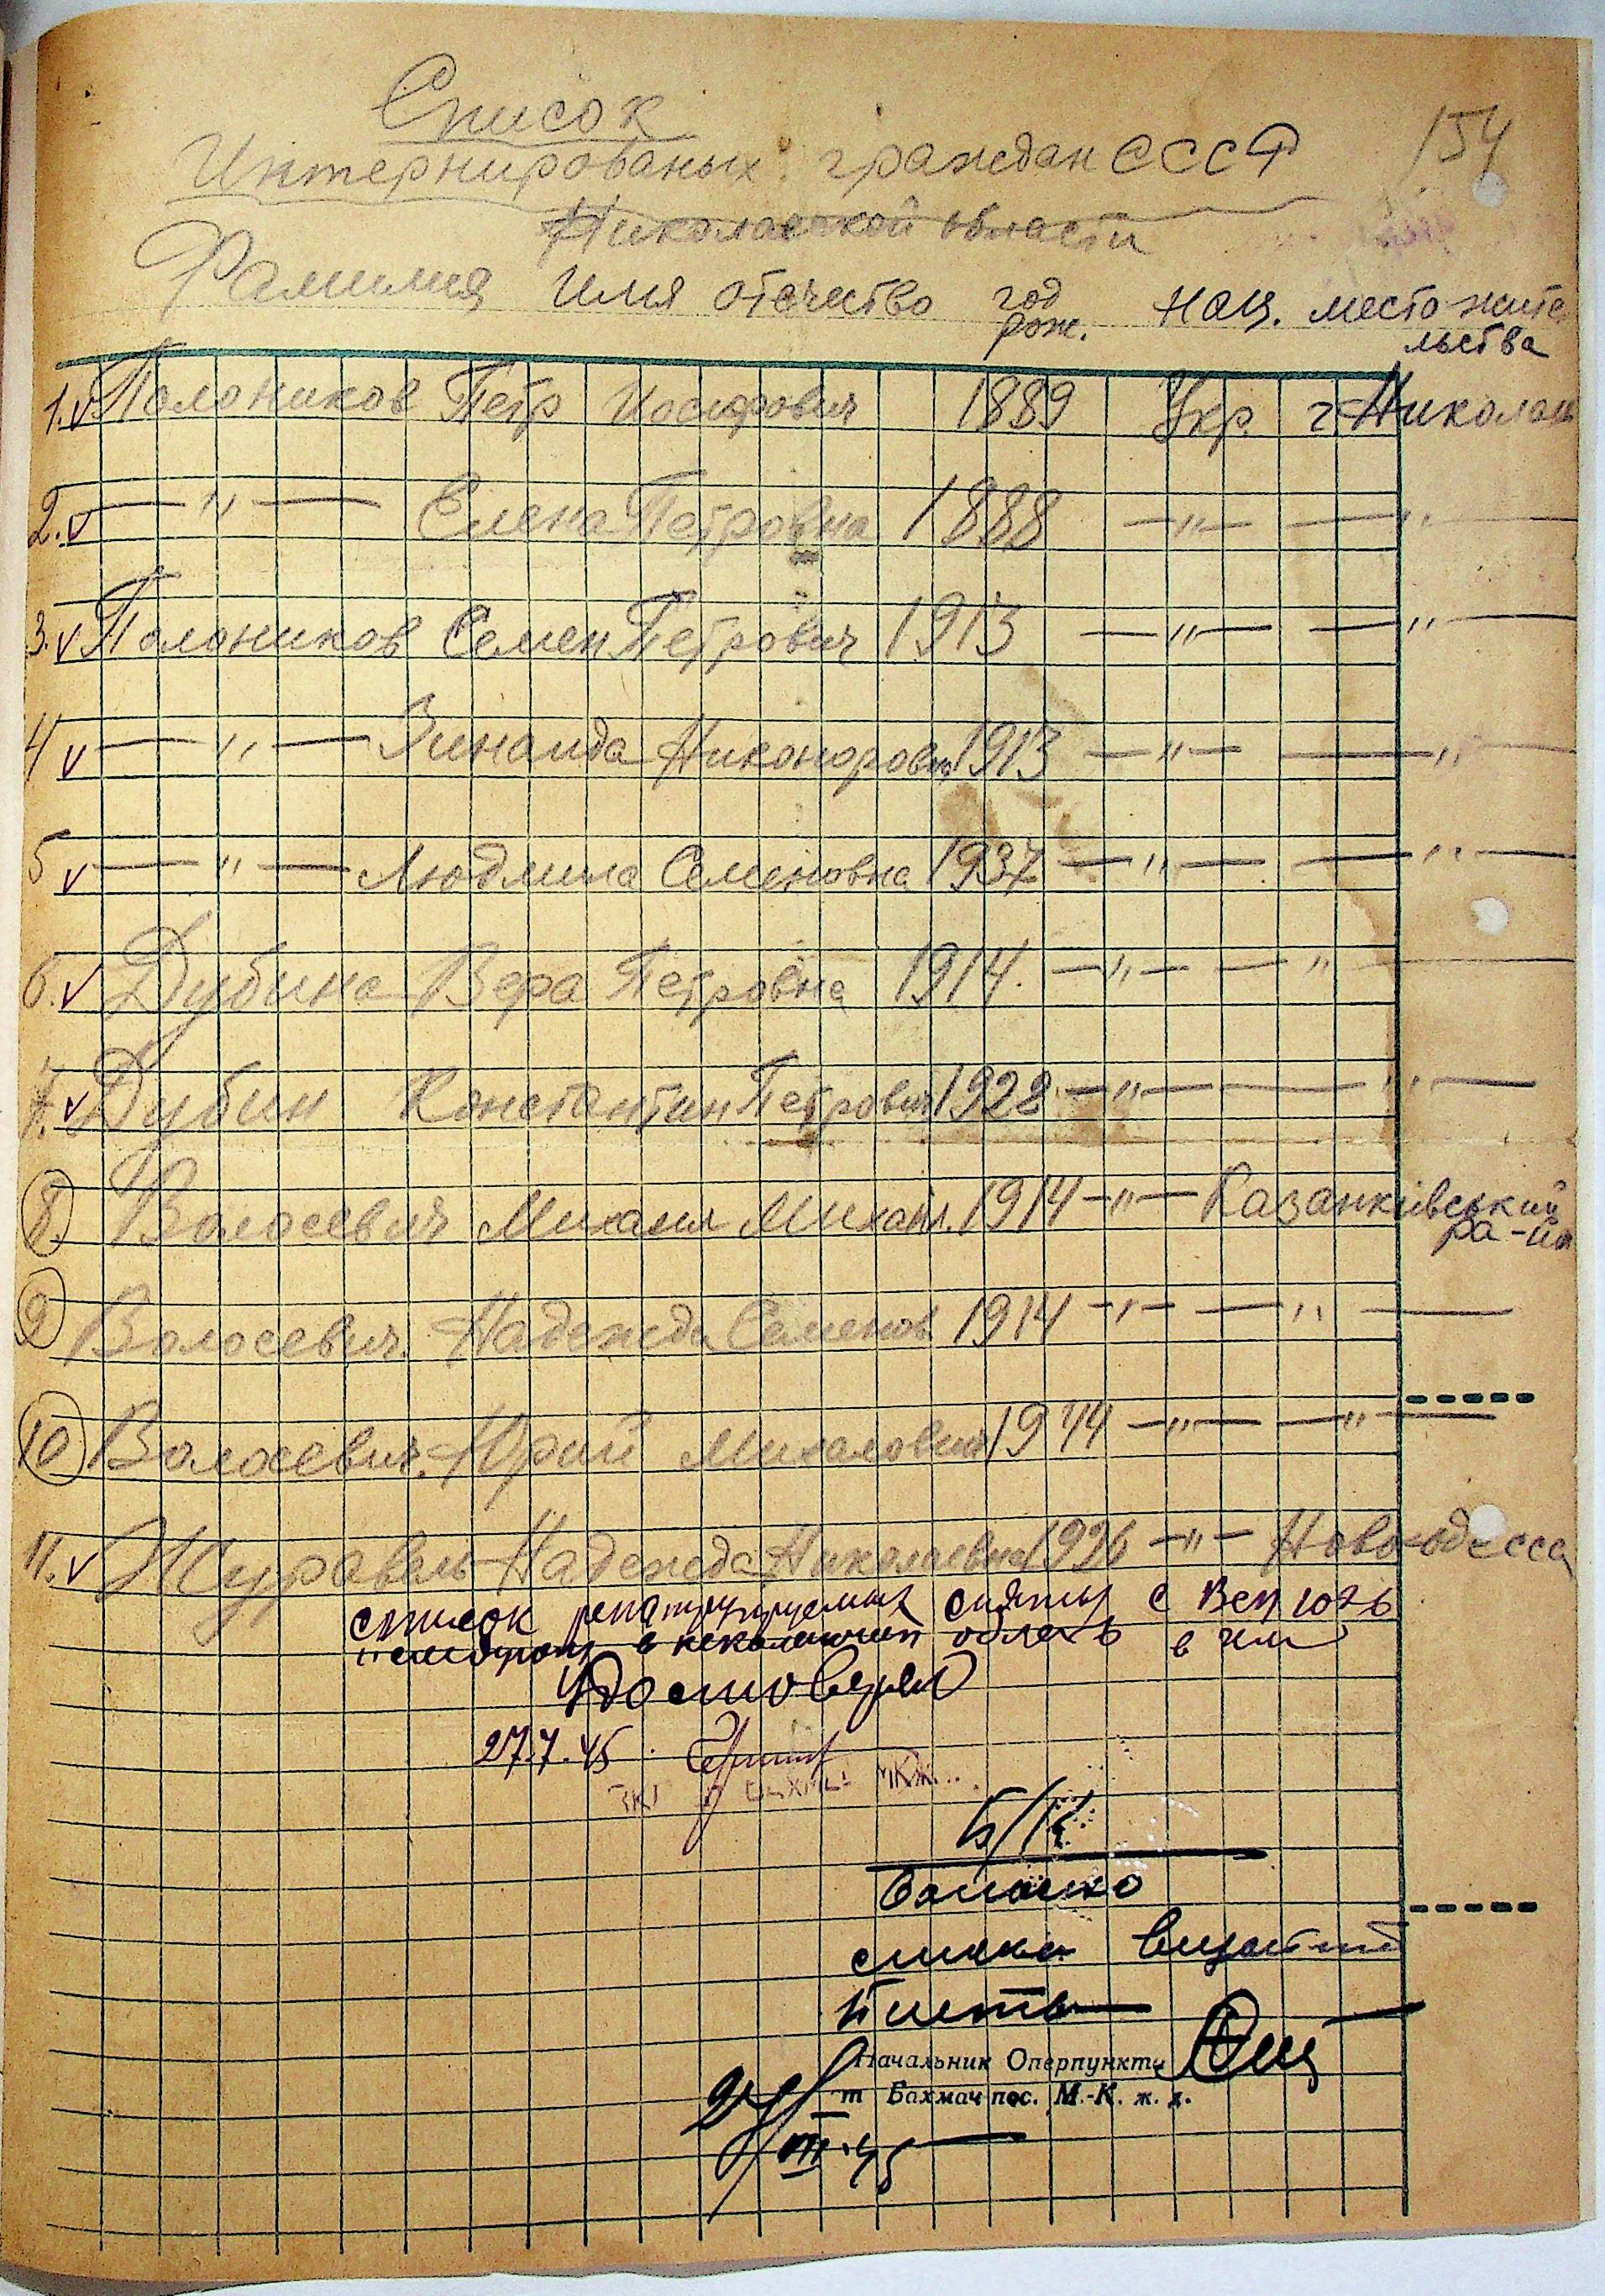 Список
154
Интернированых граждан СССР
Николаевской области
Фамилия Имя отечество год рож. нац. место жительства
1. v Полоников Петр Иосифович 1889 Укр. г. Николаев
2. v — " — Елена Петровна 1888 — " — — " —
3. v Полоников Семен Петрович 1913 — " — — " —
4 v — " — Зинаида Никоноровна 1913 — " — — " —
5 v — " — Людмила Семеновна 1937 — " — — " —
6. v Дубина Вера Петровна 1914. — " — — " —
7. v Дубин Константин Петрович 1928 — " — — " —
8 Волосевич Михаил Михайл. 1914 — " — Казанкивський ра-йн
9 Волосевич. Надежда Семенов 1914 — " — — " —
10 Волосевич. Юрий Михалович 1944 — " — — " —
11. v Журавль Надежда Николаевна 1926 — " — Ново-одесса
список репатриируемых сняты с
в области в чем
Удостоверяю
27.7.45
Б/К
Начальник Оперпункта
ст Бахмач-пас. М.-К. ж. д.
27/VII.45